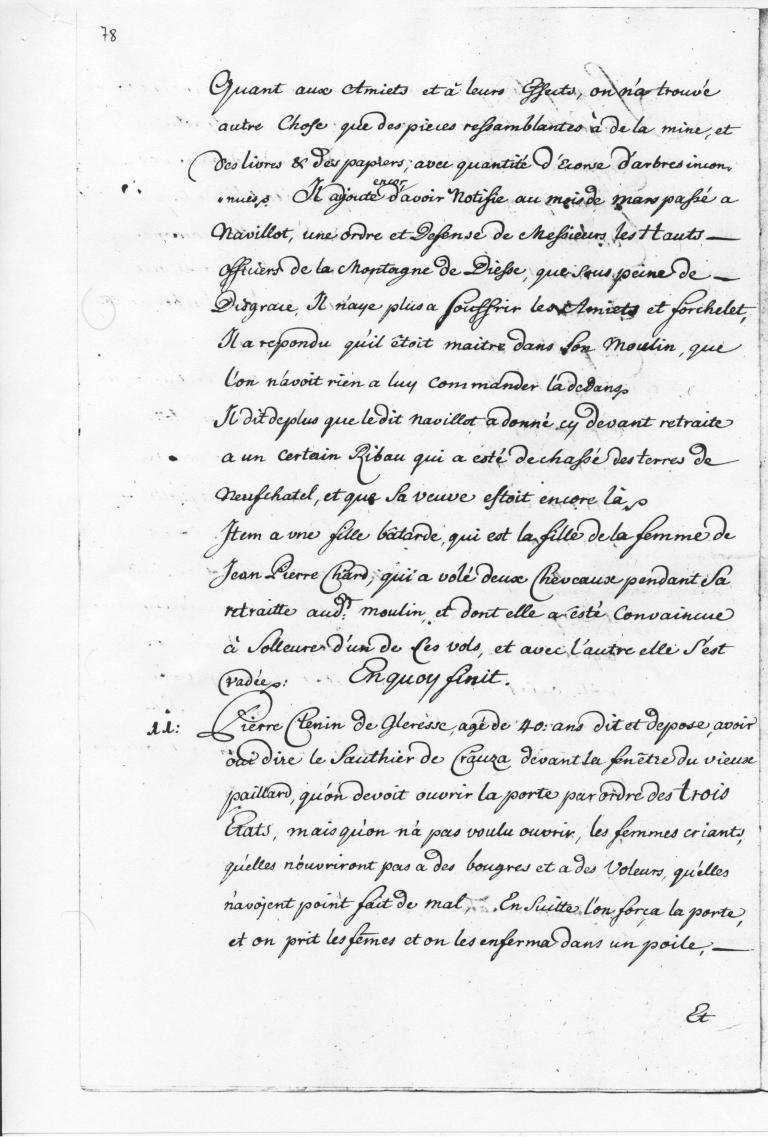 78
Quant aux Amiets et à leurs Effects, on n'a trouvé
autre Chose que des pieces ressamblantes à de la mine, et
des livres & des papiers, avec quantité d'Ecorse d'arbres incon,
,nues. Il ajoute encor d'avoir Notifie au mois de mars passé a
Navillot, une ordre et Defense de Messieurs les Hauts —
officiers de la Montagne de Diesse, que sous peine de —
Disgrace, Il n'aye plus a souffrir les Amiets et forchelet,
Il a repondu qu'il êtoit maitre dans son Moulin, que
l'on n'avoit rien a luy Commander là dedans
Il dit de plus que le dit navillot a donné cy devant retraite
a un Certain Ribau qui a esté dechassé des terres de
Neufchatel, et que sa veuve estoit encore là,
Item a une fille bâtarde, qui est la fille de la femme de
Jean Pierre Chard, qui a volé deux Cheveaux pendant sa
retraitte aud.t moulin, et dont elle a esté Convaincue
à Solleure d'un de Ces vols, et avec l'autre elle s'est
evadée: En quoy finit.
11: Pierre Clenin de Gleresse, agé de 40: ans dit et depose, avoir
oui dire le Sauthier de Crauza devant la fenêtre du vieux
paillard, qu'on devoit ouvrir la porte par ordre des trois
Etats, mais qu'on n'a pas voulu ouvrir, les femmes criants,
qu'elles n'ouvriront pas a des bougres et a des Voleurs, qu'elles
n'avoient point fait de mal, En suitte l'on força la porte,
et on prit les fêmes et on les enferma dans un poile, —
Et